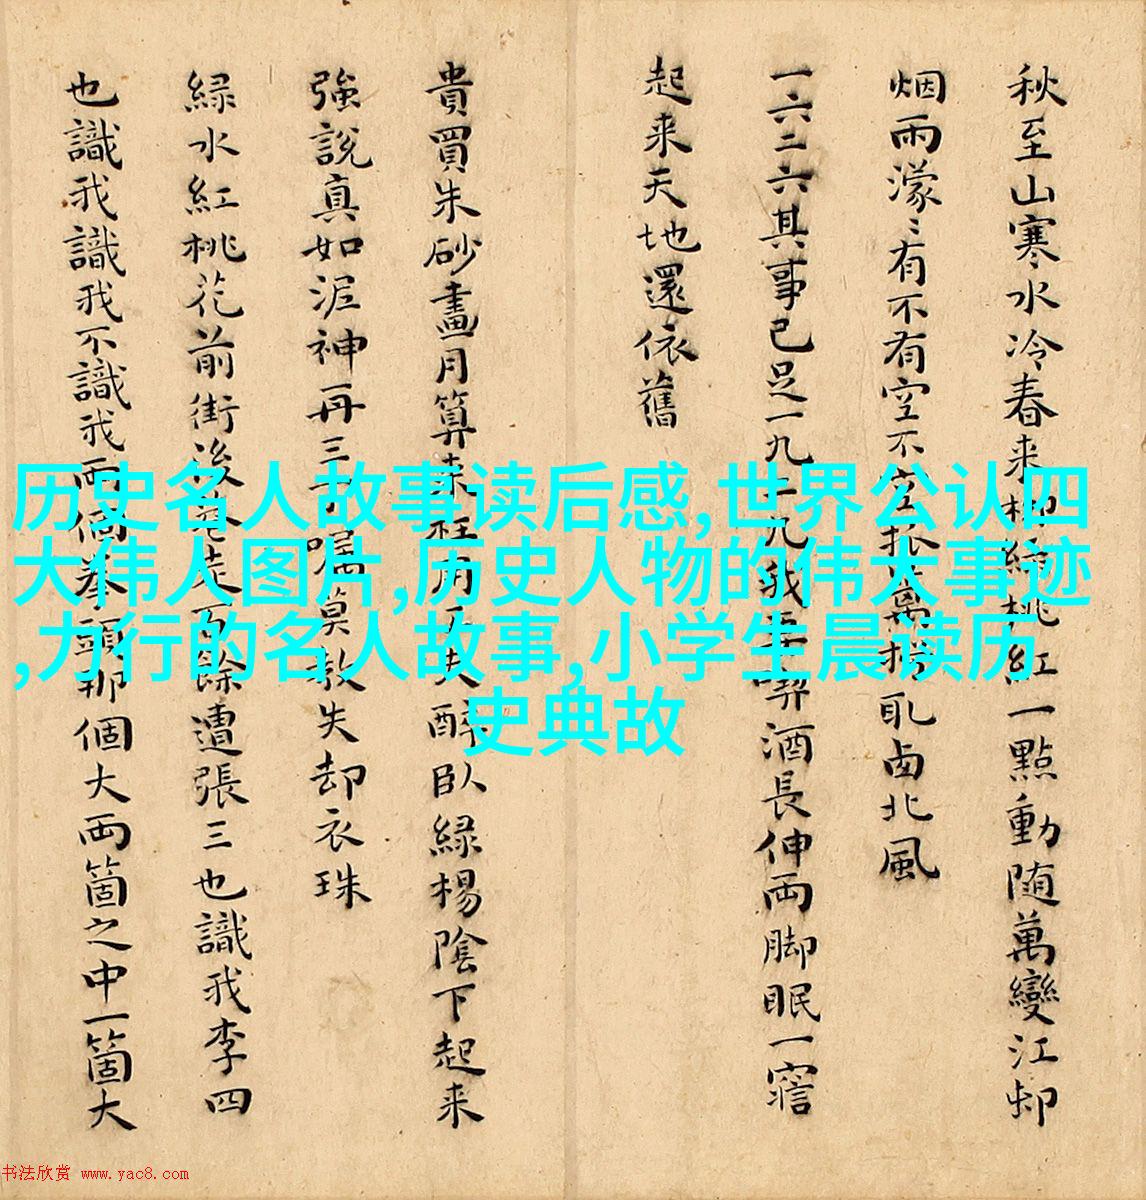 秋至山寒水冷春来柳綠桃紅一點動随萬變江邨
烟雨濛〻有不有空不空
北風
一六二六其事已足一九二九我
酒長伸両脚眠一寤
起来天地還依舊
貴買朱砂畫月算来枉用工夫醉臥緑楊陰下起来
強說真如泥神再三
囑莫教失却衣珠
緑水紅桃花前街後巷走百餘遭張三也識我李四
也識我識我不識我両個拳頭那個大両箇之中一箇大
历史名人故事读后感,世界公认四
大伟人图片,历史人物的伟大事迹
,力行的名人故事,小学生晨读历
史典故
书法欣赏 www.yac8.com